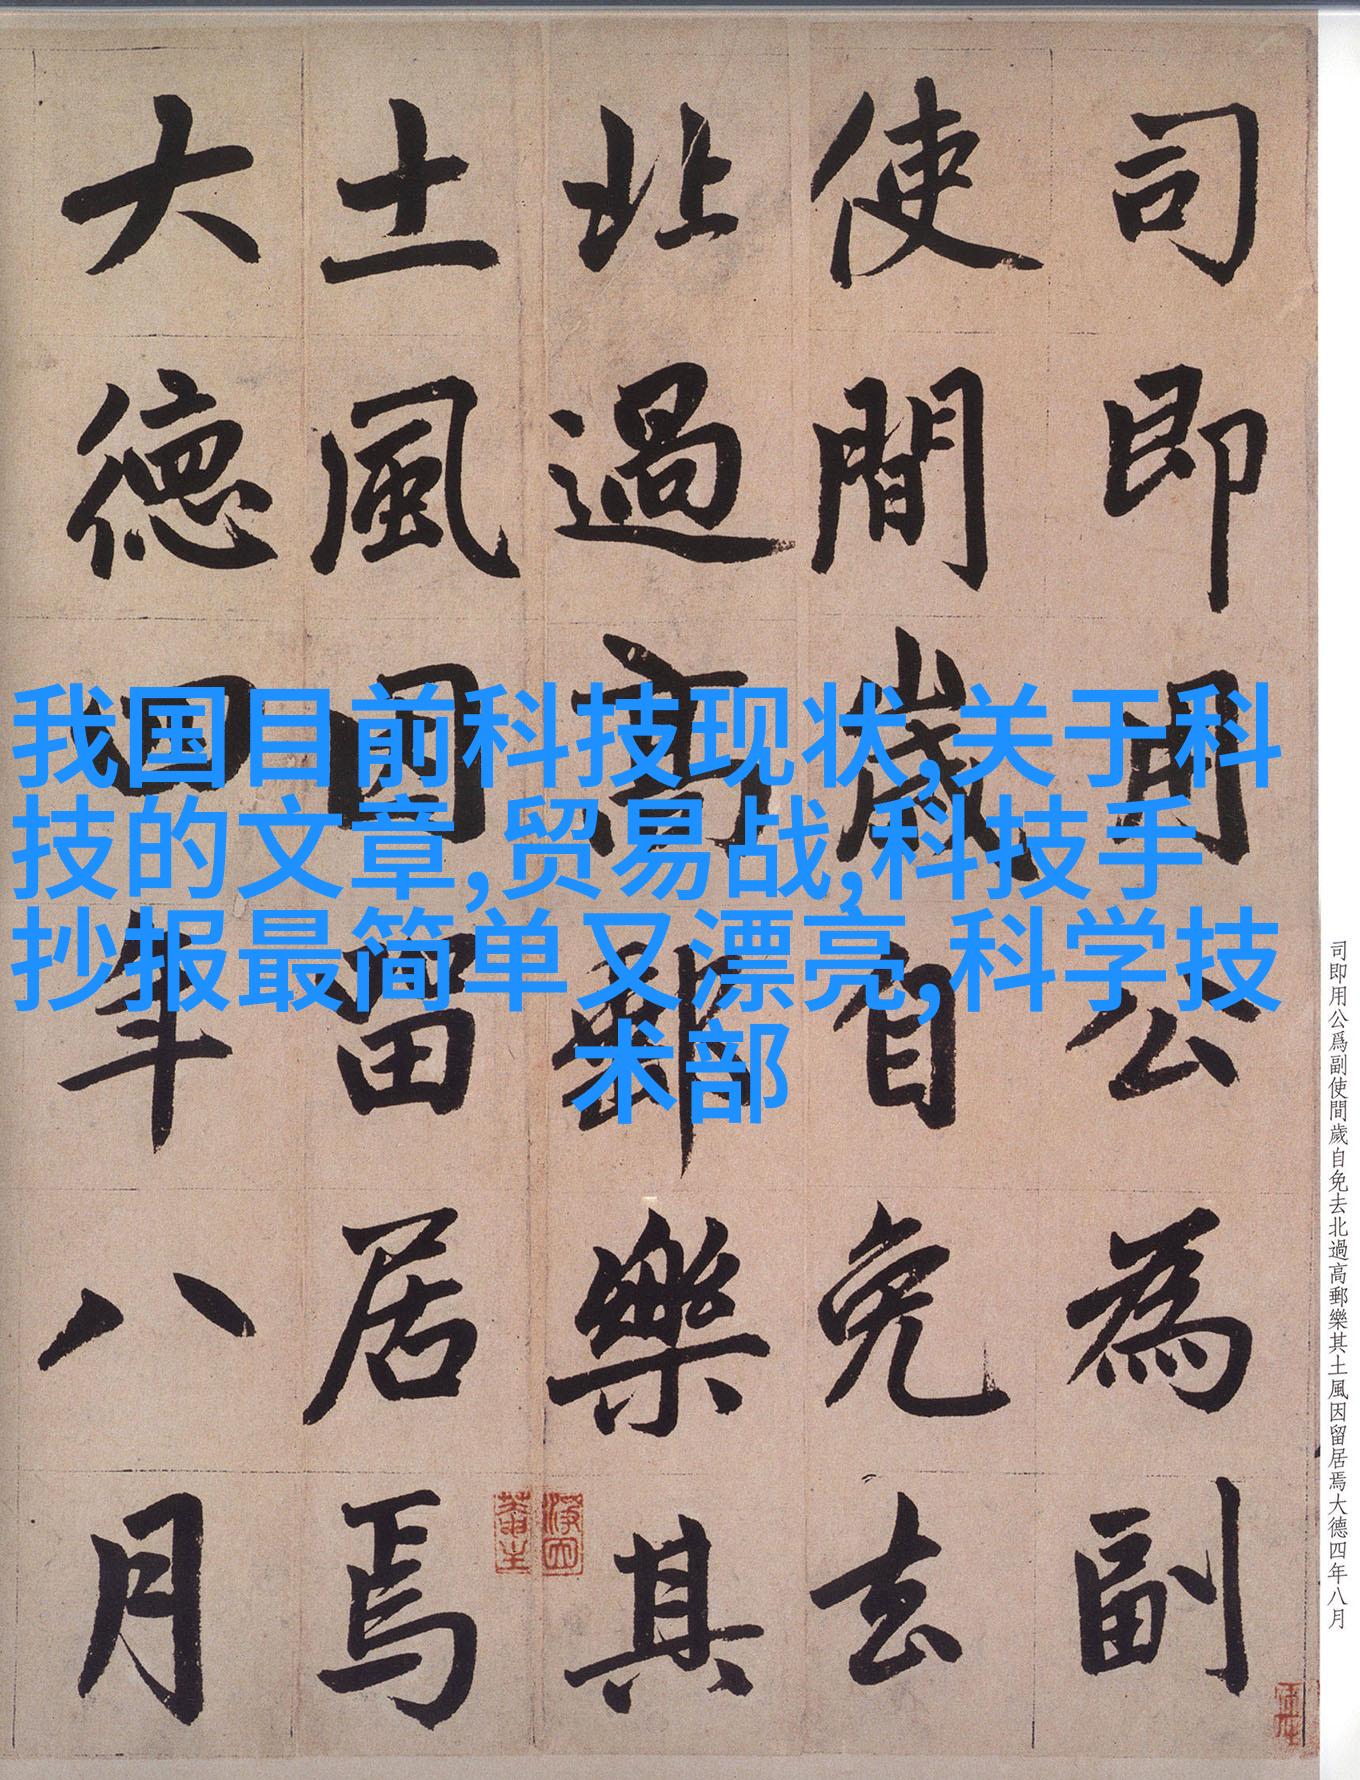 司即用公為副
使間歲自免去
北過高郵樂其
土風因留居焉
大德四年八月
我国目前科技现状,关于科
技的文章,贸易战,科技手
抄报最简单又漂亮,科学技
术部
司即用公爲副使間歲自免去北過高郵樂其土風因留居焉大德四年八月